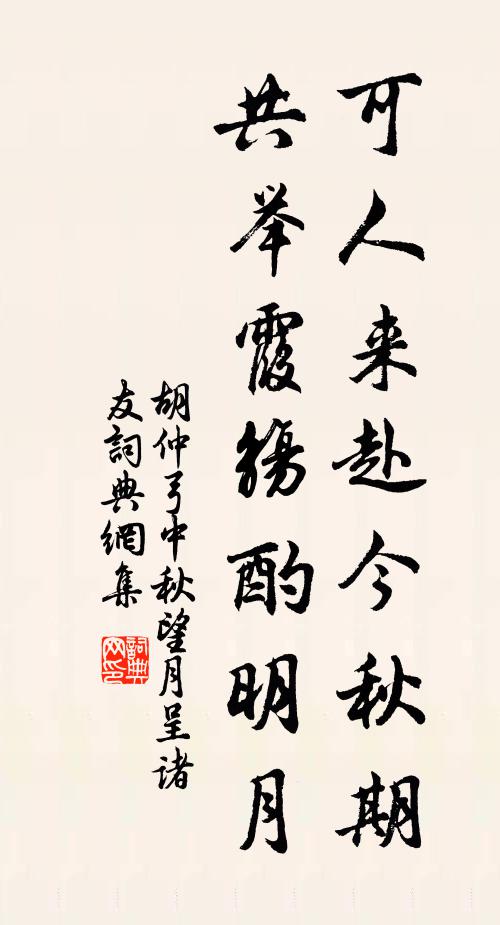 可人来赴今秋期
共举霞觴酌明月
胡仲弓中秋望月呈诸
友詞典網集
詞典網印